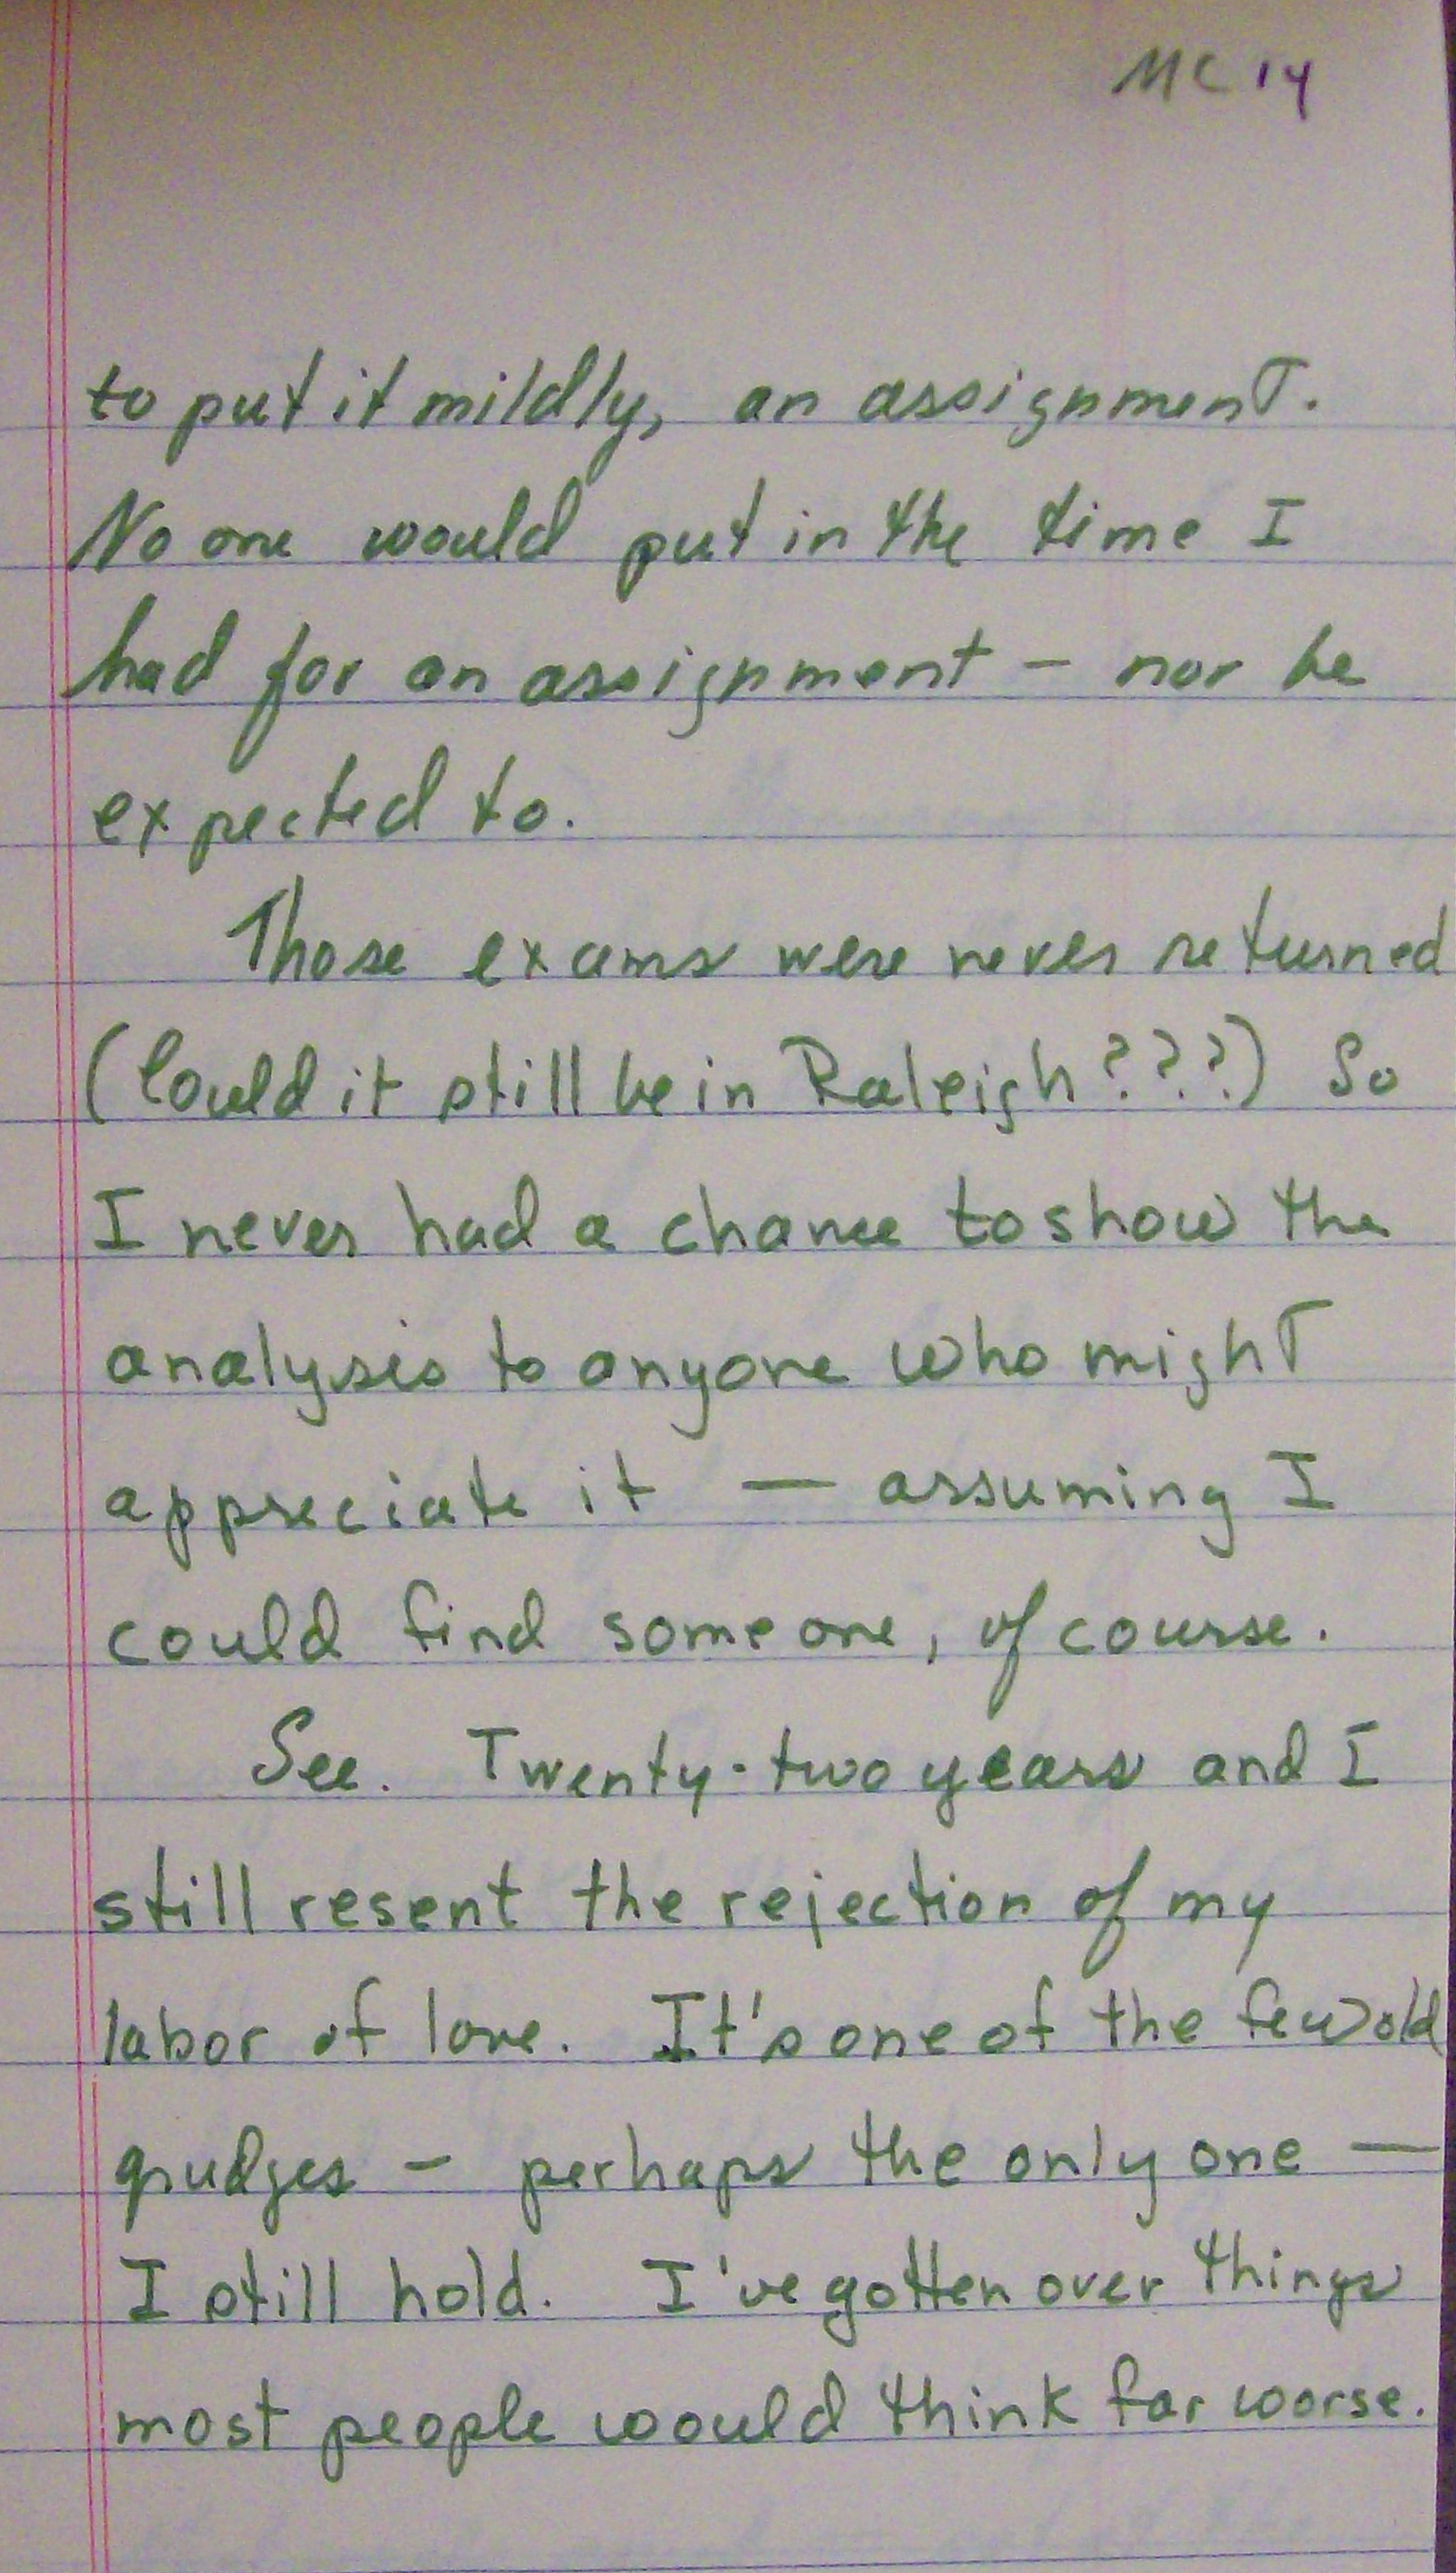 MC 14
to put it mildly, an assignment.
No one would put in the time I
had for an assignment – nor be
expected to.
Those exams were never returned
(Could it still be in Raleigh???) So
I never had a chance to show the
analysis to anyone who might
appreciate it — assuming I
could find someone, of course.
See. Twenty-two years and I
still resent the rejection of my
labor of love. It's one of the few old
grudges – perhaps the only one —
I still hold. I've gotten over things
most people would think far worse.